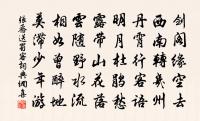 劍閣緣空去
西南轉幾州
丹霄行客語
明月杜鵑愁
露帶山花落
雲隨野水流
相如曾醉地
莫滯少年游
張喬送蜀客詞典網書